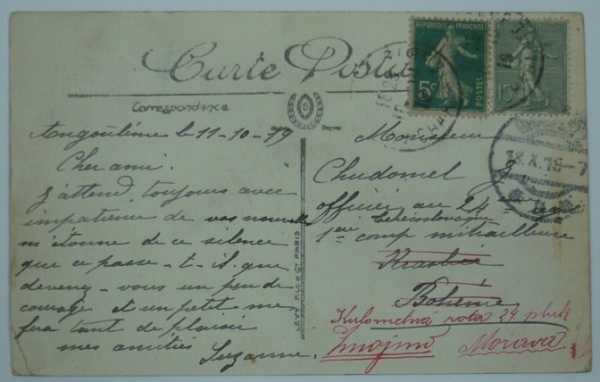 Carte Postale
Correspondence
RÉPUBLIQUE FRANÇAISE
5c
POSTES
15c
18.X.19-7
Angoulême le 11-10-19
Cher ami.
J'attend toujours avec
impatience de vos nouvelle
m'étonne de ce silence
que ce passe-t-il. que
devenez-vous un peu de
courage et un petit mo
fera tant de plaisir
mes amitiés Suzanne.
LEVY FILS & Cie PARIS
Monsieur
Chudomel J
officier au 24
Tchécoslovaque
1ère comp mitrailleuse
Bohême
Kulometná rota 24 pluk
Znojmo Morava